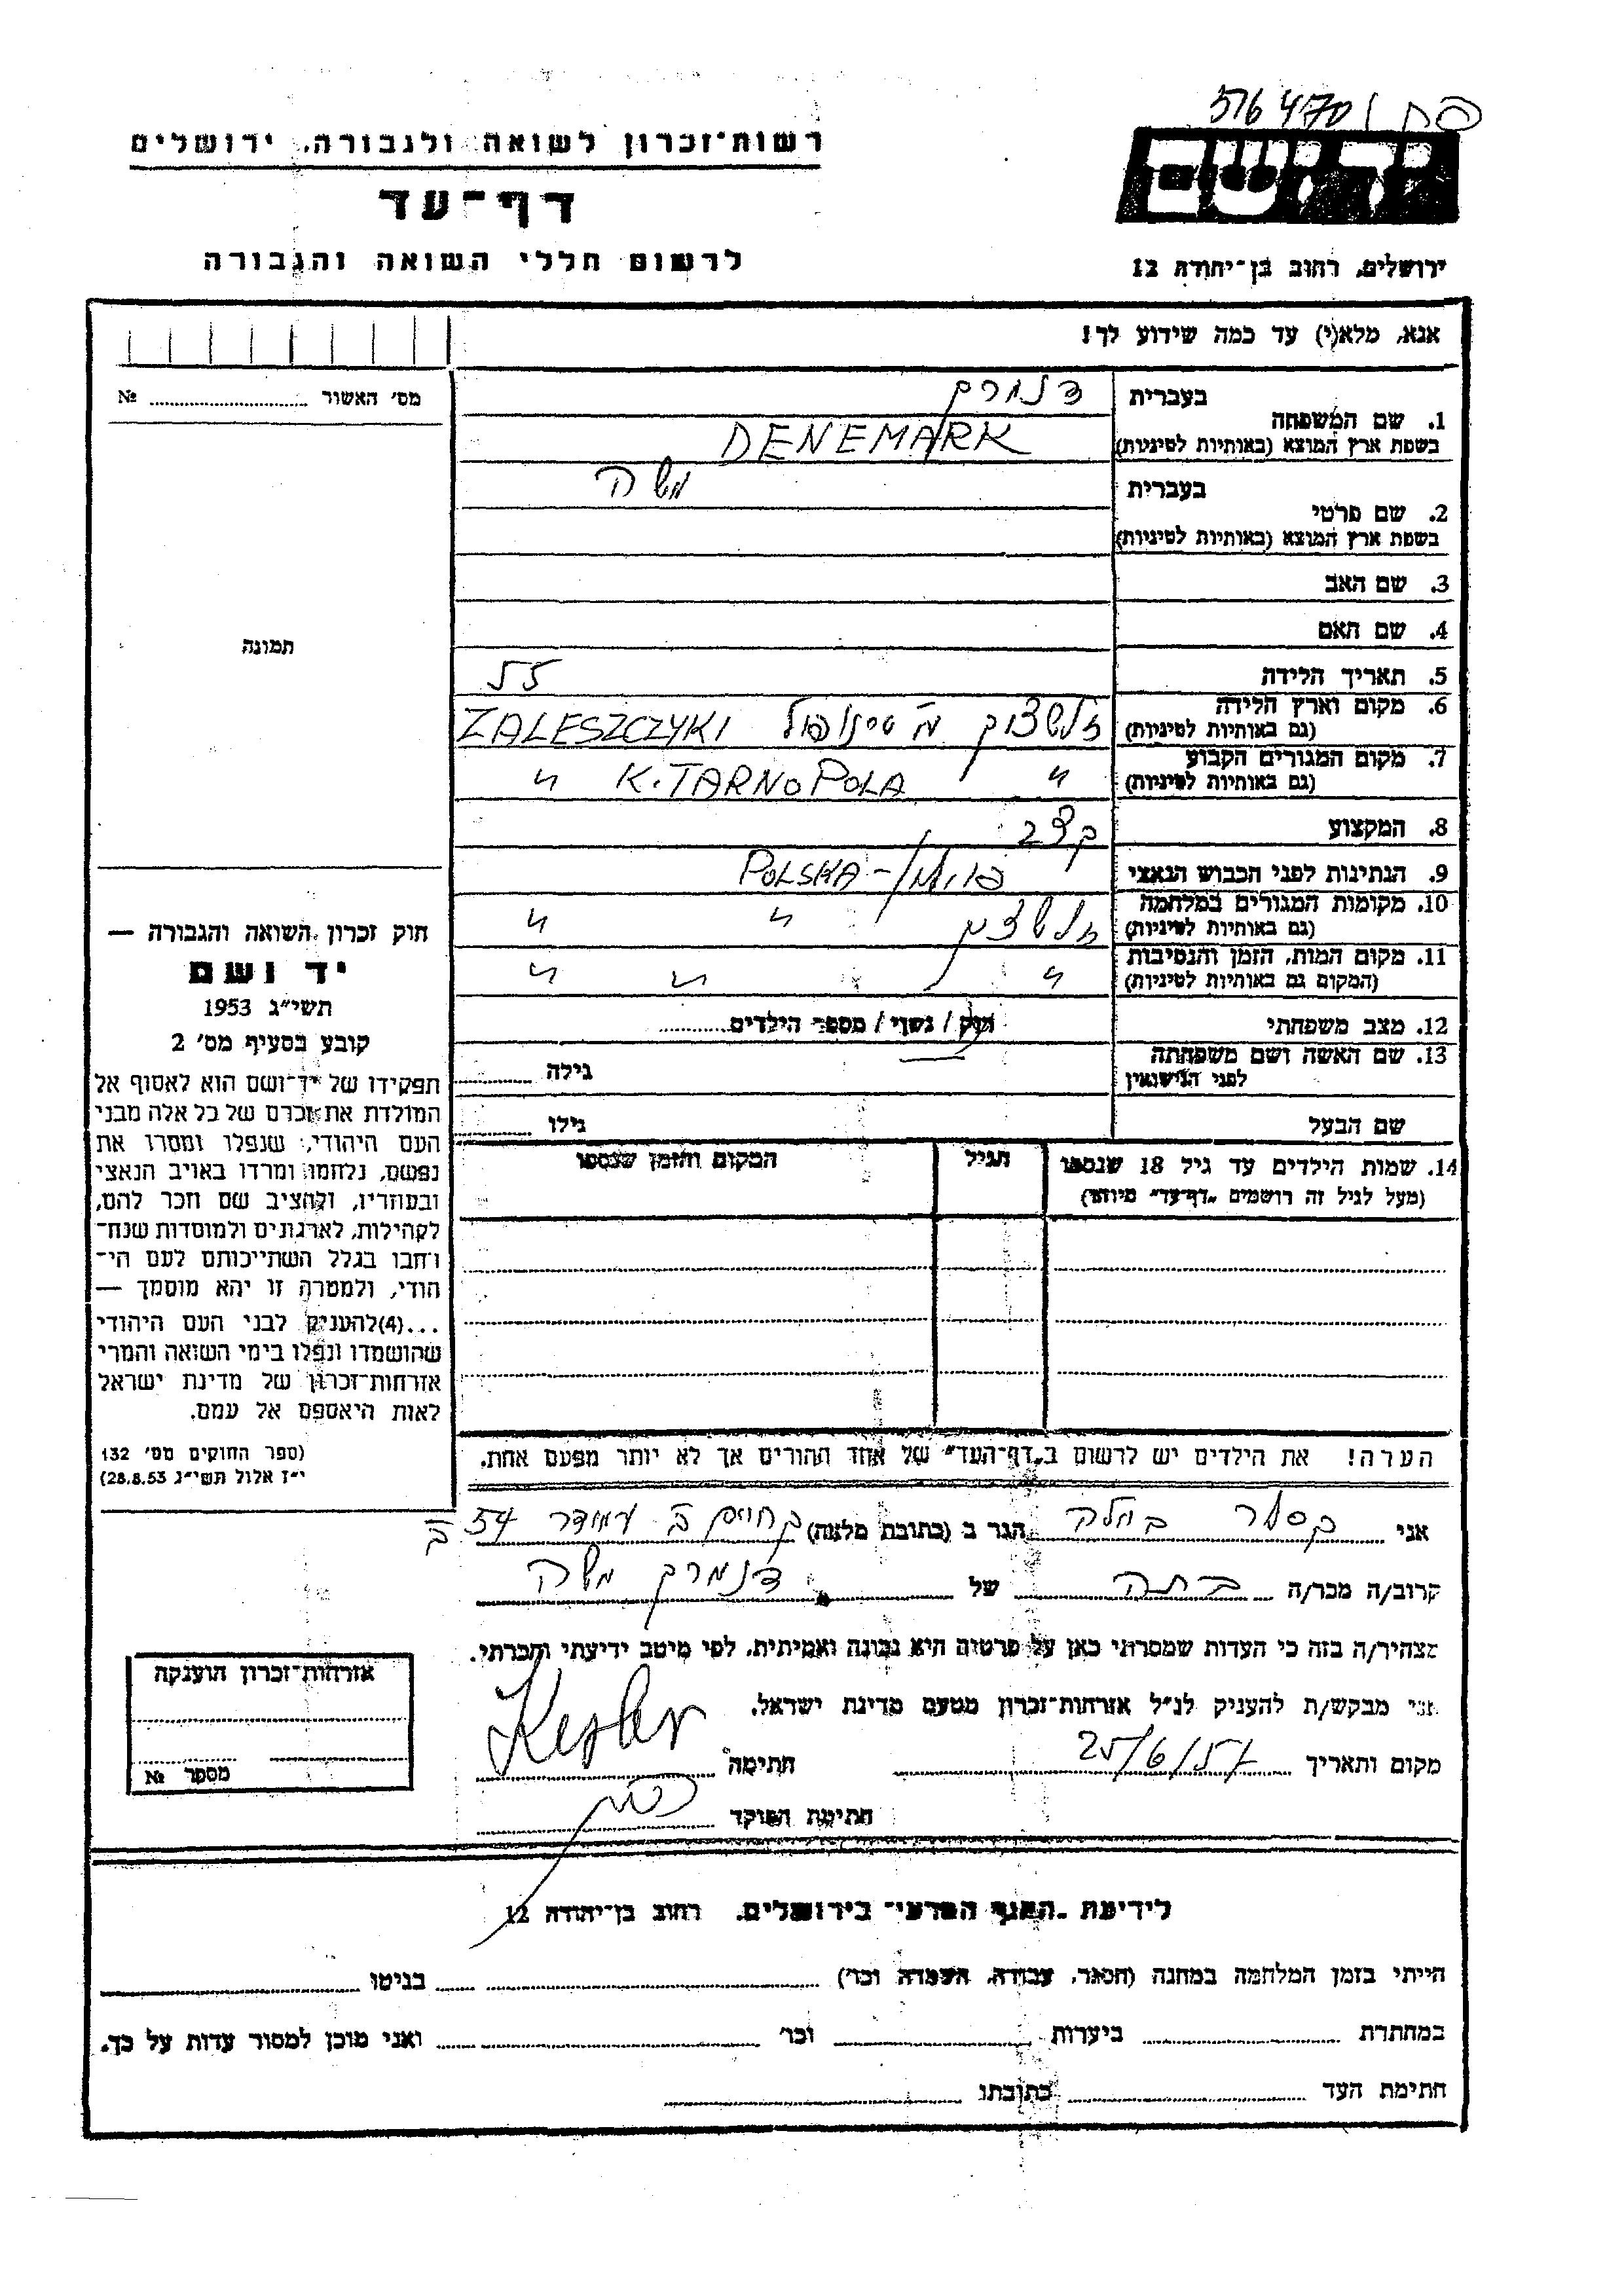 516470
יד ושם
ירושלים, רחוב בן־יהודה 12
רשות־זכרון לשואה ולגבורה, ירושלים
דף־עד
לרשום חללי השואה והגבורה
אנא, מלא(י) עד כמה שידוע לך!
מס׳ האשור № 
1. שם המשפחה
בעברית דנמרק
בשפת ארץ המוצא (באותיות לטיניות) DENEMARK
2. שם פרטי
בעברית משה
בשפת ארץ המוצא (באותיות לטיניות)
3. שם האב
4. שם האם
5. תאריך הלידה 55
6. מקום וארץ הלידה
(גם באותיות לטיניות) ZALESZCZYKI
7. מקום המגורים הקבוע
(גם באותיות לטיניות) " K. TARNOPOLA "
8. המקצוע קצב
9. הנתינות לפני הכבוש הנאצי POLSKA - פולין
10. מקומות המגורים במלחמה
(גם באותיות לטיניות) " "
11. מקום המות, הזמן והנסיבות
(המקום גם באותיות לטיניות) " " "
12. מצב משפחתי רווק / נשוי / מספר הילדים
13. שם האשה ושם משפחתה
לפני הנישואין גילה
שם הבעל גילו
14. שמות הילדים עד גיל 18 שנספו הגיל המקום והזמן שנספו
(מעל לגיל זה רושמים „דף־עד” מיוחד)
הערה! את הילדים יש לרשום ב„דף־העד” של אחד ההורים אך לא יותר מפעם אחת.
תמונה
חוק זכרון השואה והגבורה —
יד ושם
תשי״ג 1953
קובע בסעיף מס׳ 2
תפקידו של יד־ושם הוא לאסוף אל
המולדת את זכרם של כל אלה מבני
העם היהודי, שנפלו ומסרו את
נפשם, נלחמו ומרדו באויב הנאצי
ובעוזריו, ולהציב שם וזכר להם,
לקהילות, לארגונים ולמוסדות שנח־
רבו בגלל השתייכותם לעם הי־
הודי, ולמטרה זו יהא מוסמך —
...(4)להעניק לבני העם היהודי
שהושמדו ונפלו בימי השואה והמרי
אזרחות־זכרון של מדינת ישראל
לאות היאספם אל עמם.
(ספר החוקים מס׳ 132
י״ז אלול תשי״ג 28.8.53)
אני קסלר הגר ב (כתובת מלאה) 54
קרוב/ה מכר/ה בתה של דנמרק משה
מצהיר/ה בזה כי העדות שמסרתי כאן על פרטיה היא נכונה ואמיתית, לפי מיטב ידיעתי והכרתי.
אני מבקש/ת להעניק לנ״ל אזרחות־זכרון מטעם מדינת ישראל.
מקום ותאריך 25/6/57 חתימה Kesler
חתימת הפוקד
אזרחות־זכרון הוענקה
מספר №
לידיעת „האגף המדעי” בירושלים, רחוב בן־יהודה 12
הייתי בזמן המלחמה במחנה (הסגר, עבודה, השמדה וכו׳) בגיטו
במחתרת ביערות וכו׳ ואני מוכן למסור עדות על כך.
חתימת העד כתובתו